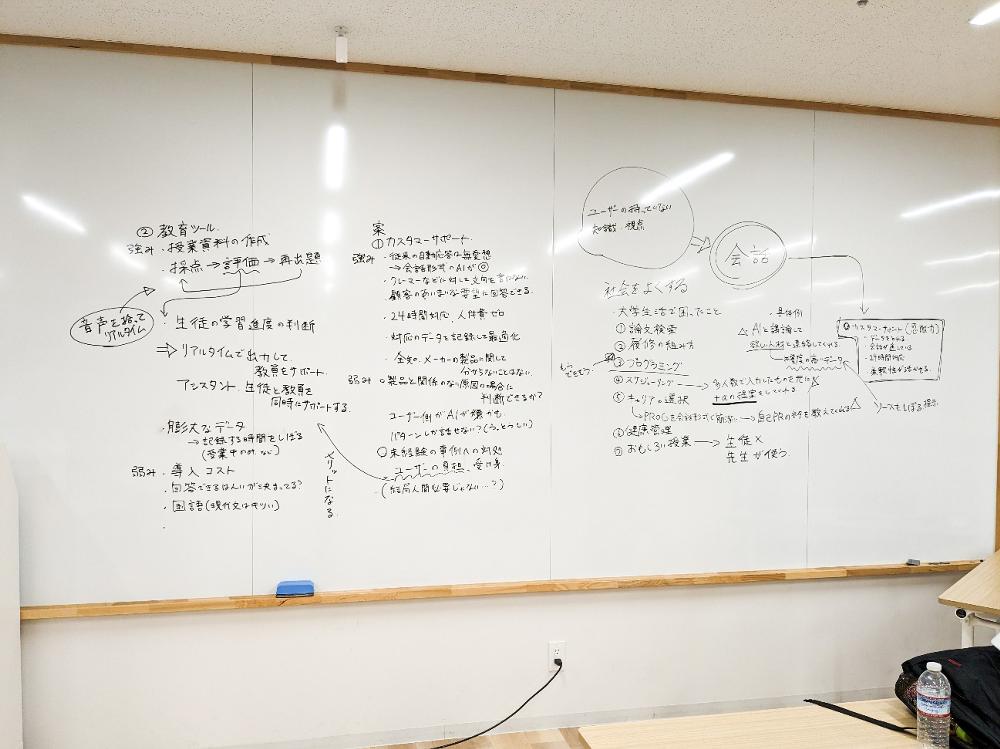 ② 教育ツール
強み ・授業資料の作成
・採点→評価→再出題
音声を拾って
リアルタイム
・生徒の学習進度の判断
⇒ リアルタイムで出力して、
教員をサポート
アシスタント、生徒と教員を
同時にサポートする。
・膨大なデータ
→記録する時間をしぼる
(授業中のみ など)
弱み ・導入コスト
・回答できるはんいが決まってる?
・国語(現代文はキツい)
メリットになる
案
①カスタマーサポート
強み ・従来の自動応答は無愛想
→会話形式のAIが◎
・クレーマーなどに対して文句を言わない
顧客のあいまいな要望に回答できる。
・24時間対応、人件費ゼロ
・対応のデータを記録して最適化
・全知。メーカーの製品に関して
分からないことはない。
弱み ○製品と関係のない原因の場合に
判断できるか?
ユーザー側がAIが嫌かも
パターンしか話せない?(うっとうしい)
○未経験の事例への対処
ユーザーの負担、受け身
・(結局人間必要じゃない…?)
ユーザーの持っていない
知識・視点
会話
社会をよくする
・大学生活で困ったこと
①論文検索
②履修の組み方
③プログラミング
④スケジューリング→多人数で入力したものを元に
⑤キャリアの選択
→PROGを会話形式で
自己PRのネタを教えてくれる△
⑥健康管理
⑦おもしろい授業→生徒×
先生が使う
・具体例
△AIと議論して
欲しい人材と連絡してくれる
精度の高いデータ
ソースをしぼる
カスタマーサポート(忍耐力)
・24時間対応
・柔軟性が活かせる。